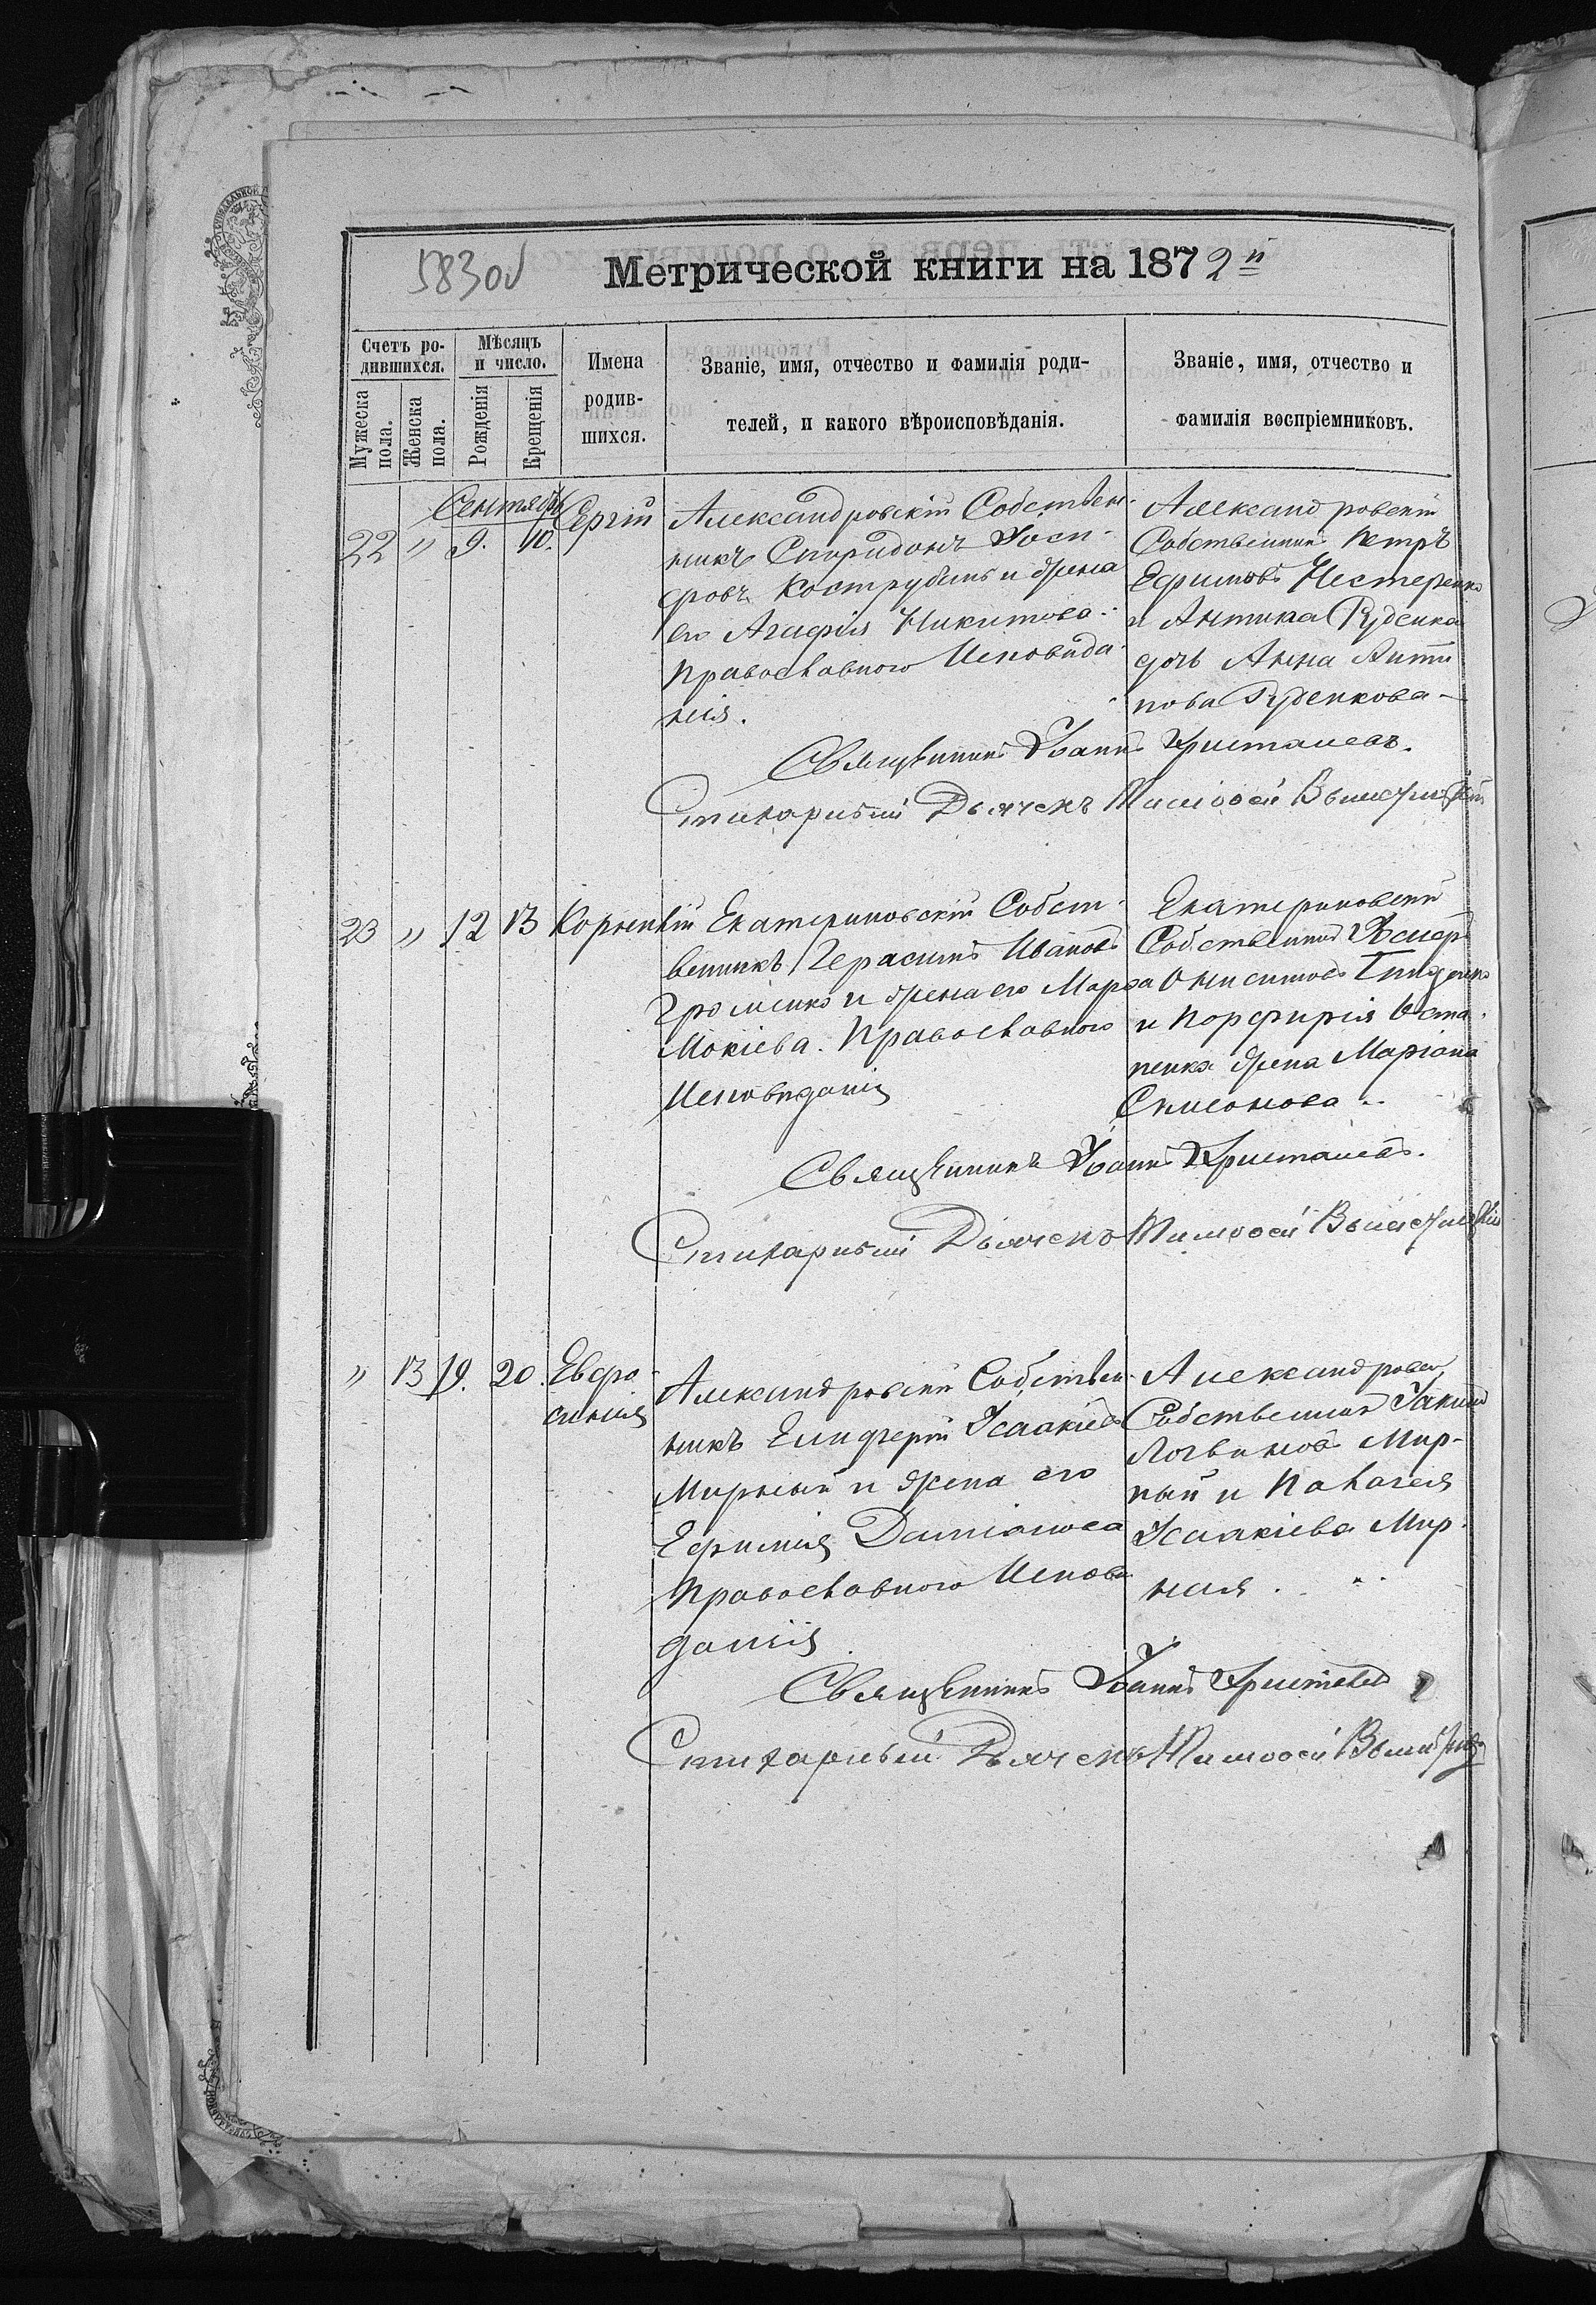 583об
Метрической книги на 1872 й
Счетъ ро-
дившихся.
Мужеска пола.
Женска пола.
Мѣсяцъ
и число.
Рожденія
Крещенія
Имена
родив-
шихся.
Званіе, имя, отчество и фамилія роди-
телей, и какого вѣроисповѣданія.
Званіе, имя, отчество и
фамилія воспріемниковъ.
Сентябрь
22 " 9. 10. Сергій
Александровскій Собствен-
никъ Спиридонъ Іоси-
фовъ Кострубинъ и жена
его Агафія Никитова
Православного Исповѣда-
нія.
Александровскій
Собственникъ Петръ
Ефимовъ Нестеренко
и Антипа Руденка
дочь Анна Анти
пова Руденкова
Священникъ Іоаннъ
Стихарный Дьячекъ Тимоѳей
23 " 12 13 Корнилій
Екатериновскій Собст-
венникъ Герасимъ Ивановъ
и жена его Марѳа
Мокіева. Православного
Исповѣданія
Екатериновскій
Собственникъ
Онисимовъ
и Порфирія Оста-
пенка жена Маріана
Симонова
Священникъ Іоаннъ
Стихарный Дьячекъ Тимоѳей
" 13 19. 20. Евфро-
синія
Александровскій Собствен-
никъ Елифѳерій Ісаакіевъ
Мирный и жена его
Ефимія Даміанова
Православного Исповѣ
данія
Александровскій
Собственникъ Іакимъ
Логвиновъ Мир-
ный и Палагея
Ісаакіева Мир-
ная.
Священникъ Іоаннъ
Стихарный Дьячекъ Тимоѳей